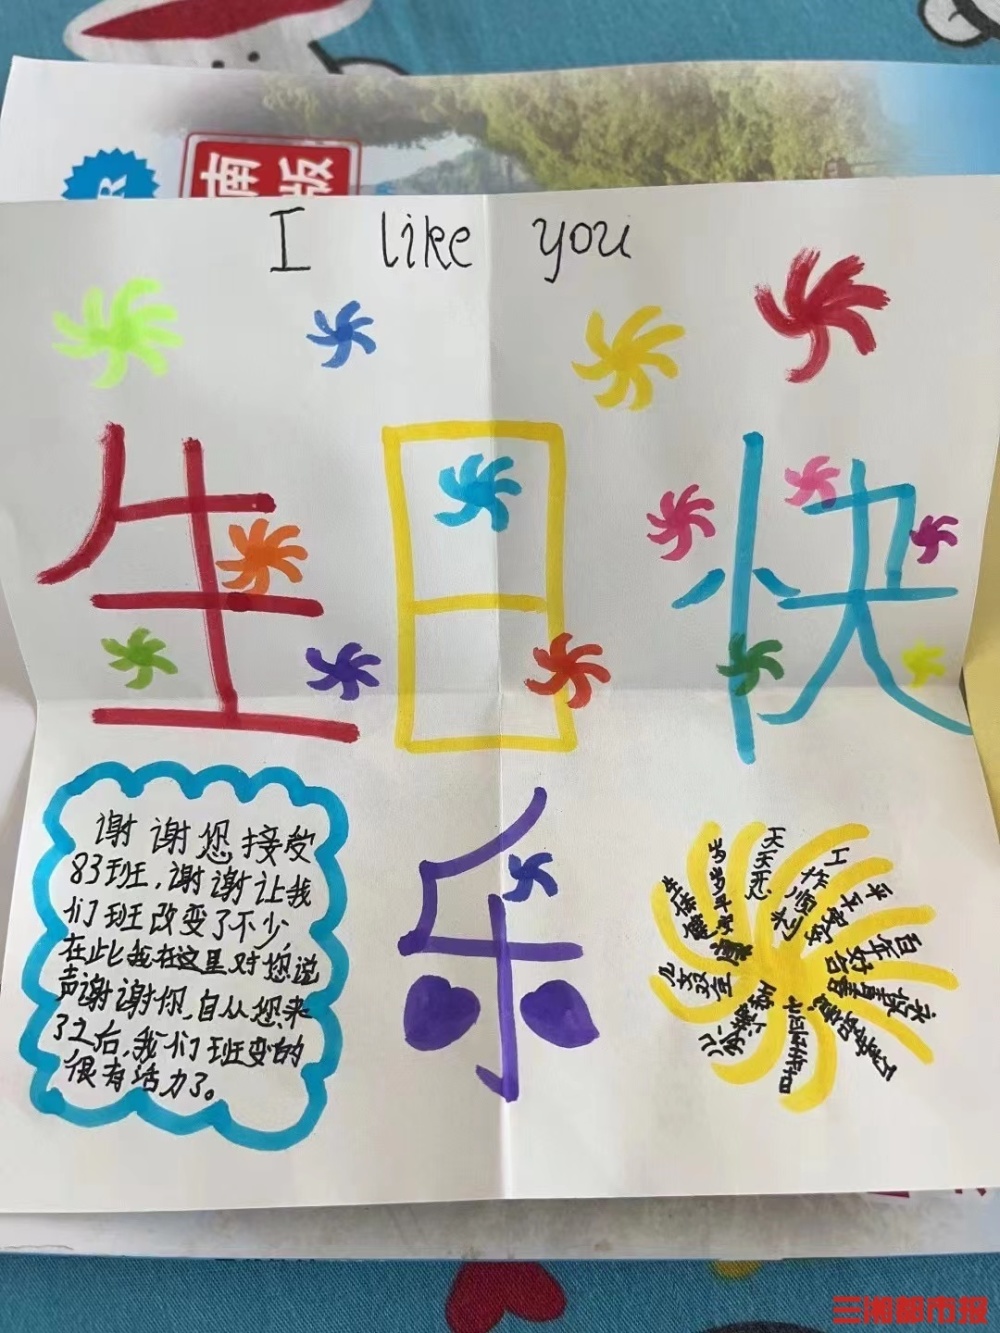 南版
I like you
生日快
乐
谢谢您接受
83班,谢谢让我
们班改变了不少,
在此我在这里对您说
声谢谢你,自从您来
了之后,我们班变的
很有活力了。
岁岁平安
天天开心
工作顺利
三湘都市报